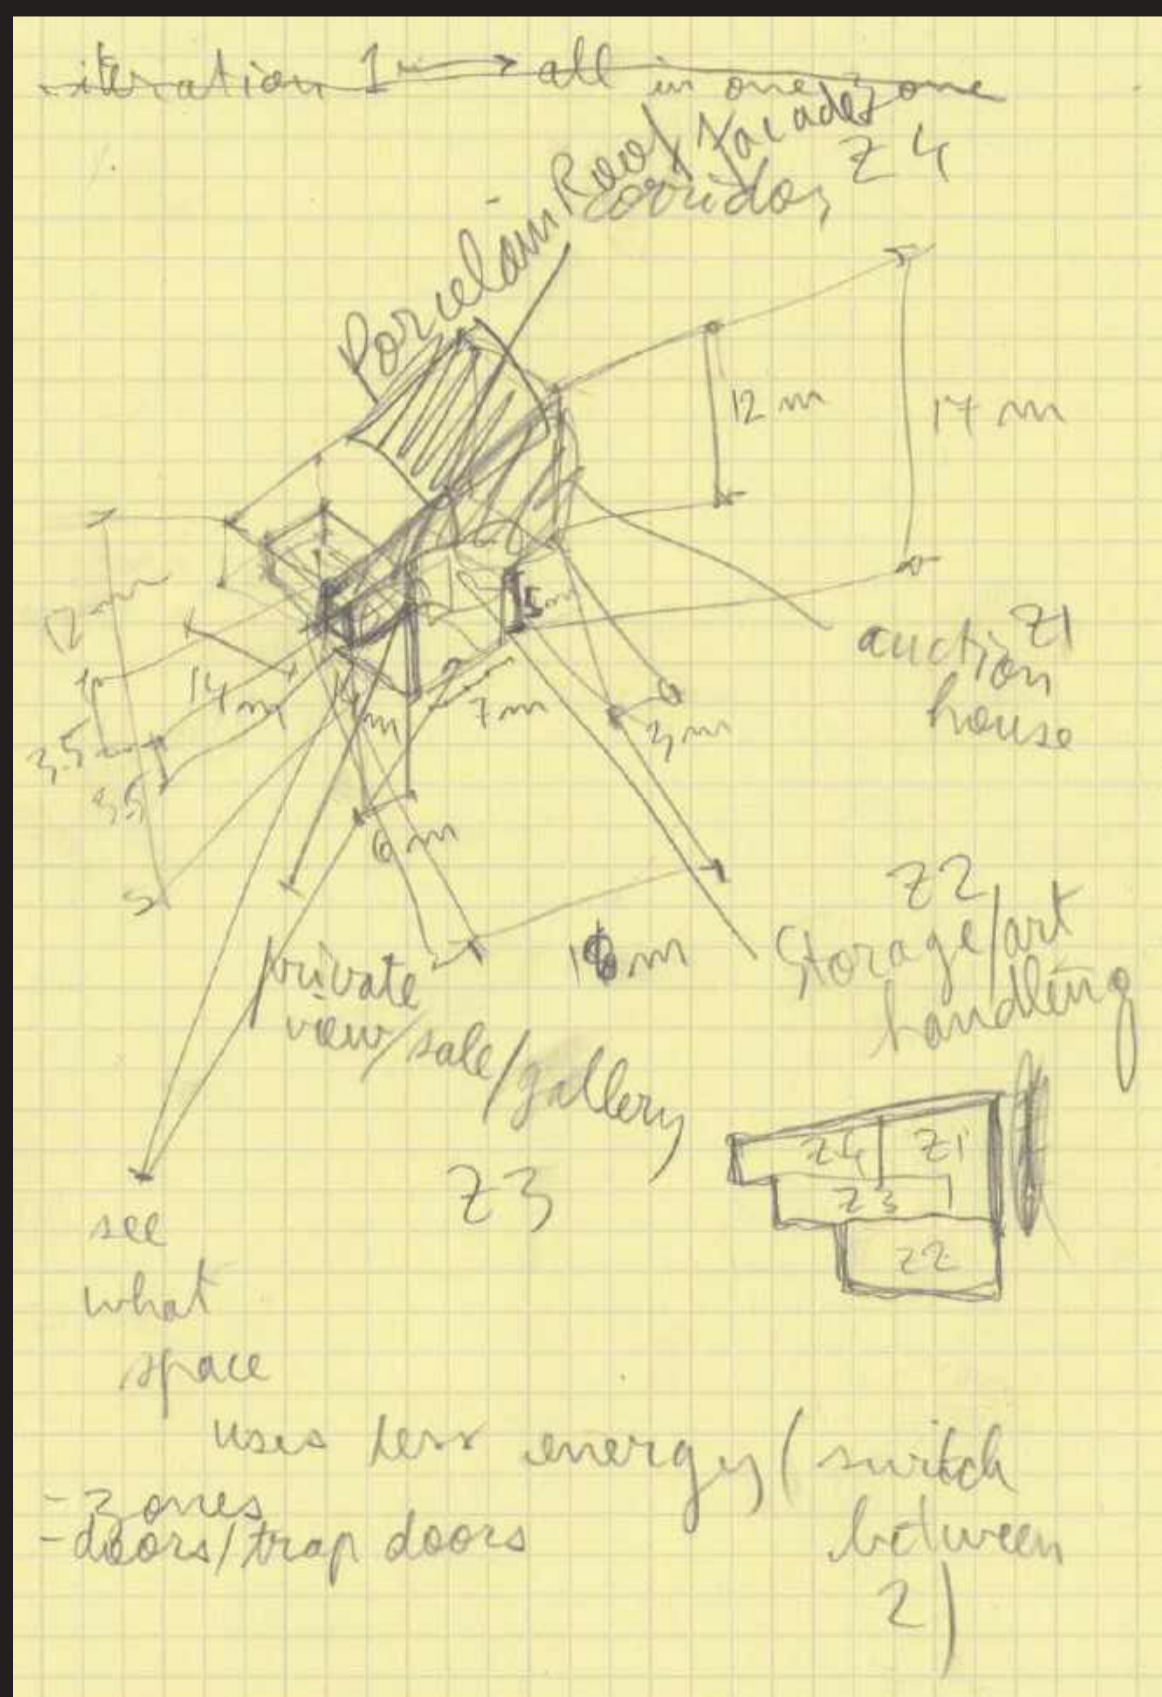 iteration 1 → all in one zone
Porcelain Roof/facades
corridor
Z4
12 m
17 m
12 m
5m
Z1
auction
house
14 m
4m
7m
3,5
3,5
3m
6 m
18m
Z2
Storage/art
handling
private
view/sale/gallery
Z3
Z4 Z1
Z3
Z2
see
what
space
uses less energy (switch
between
2)
- zones
- doors/trap doors